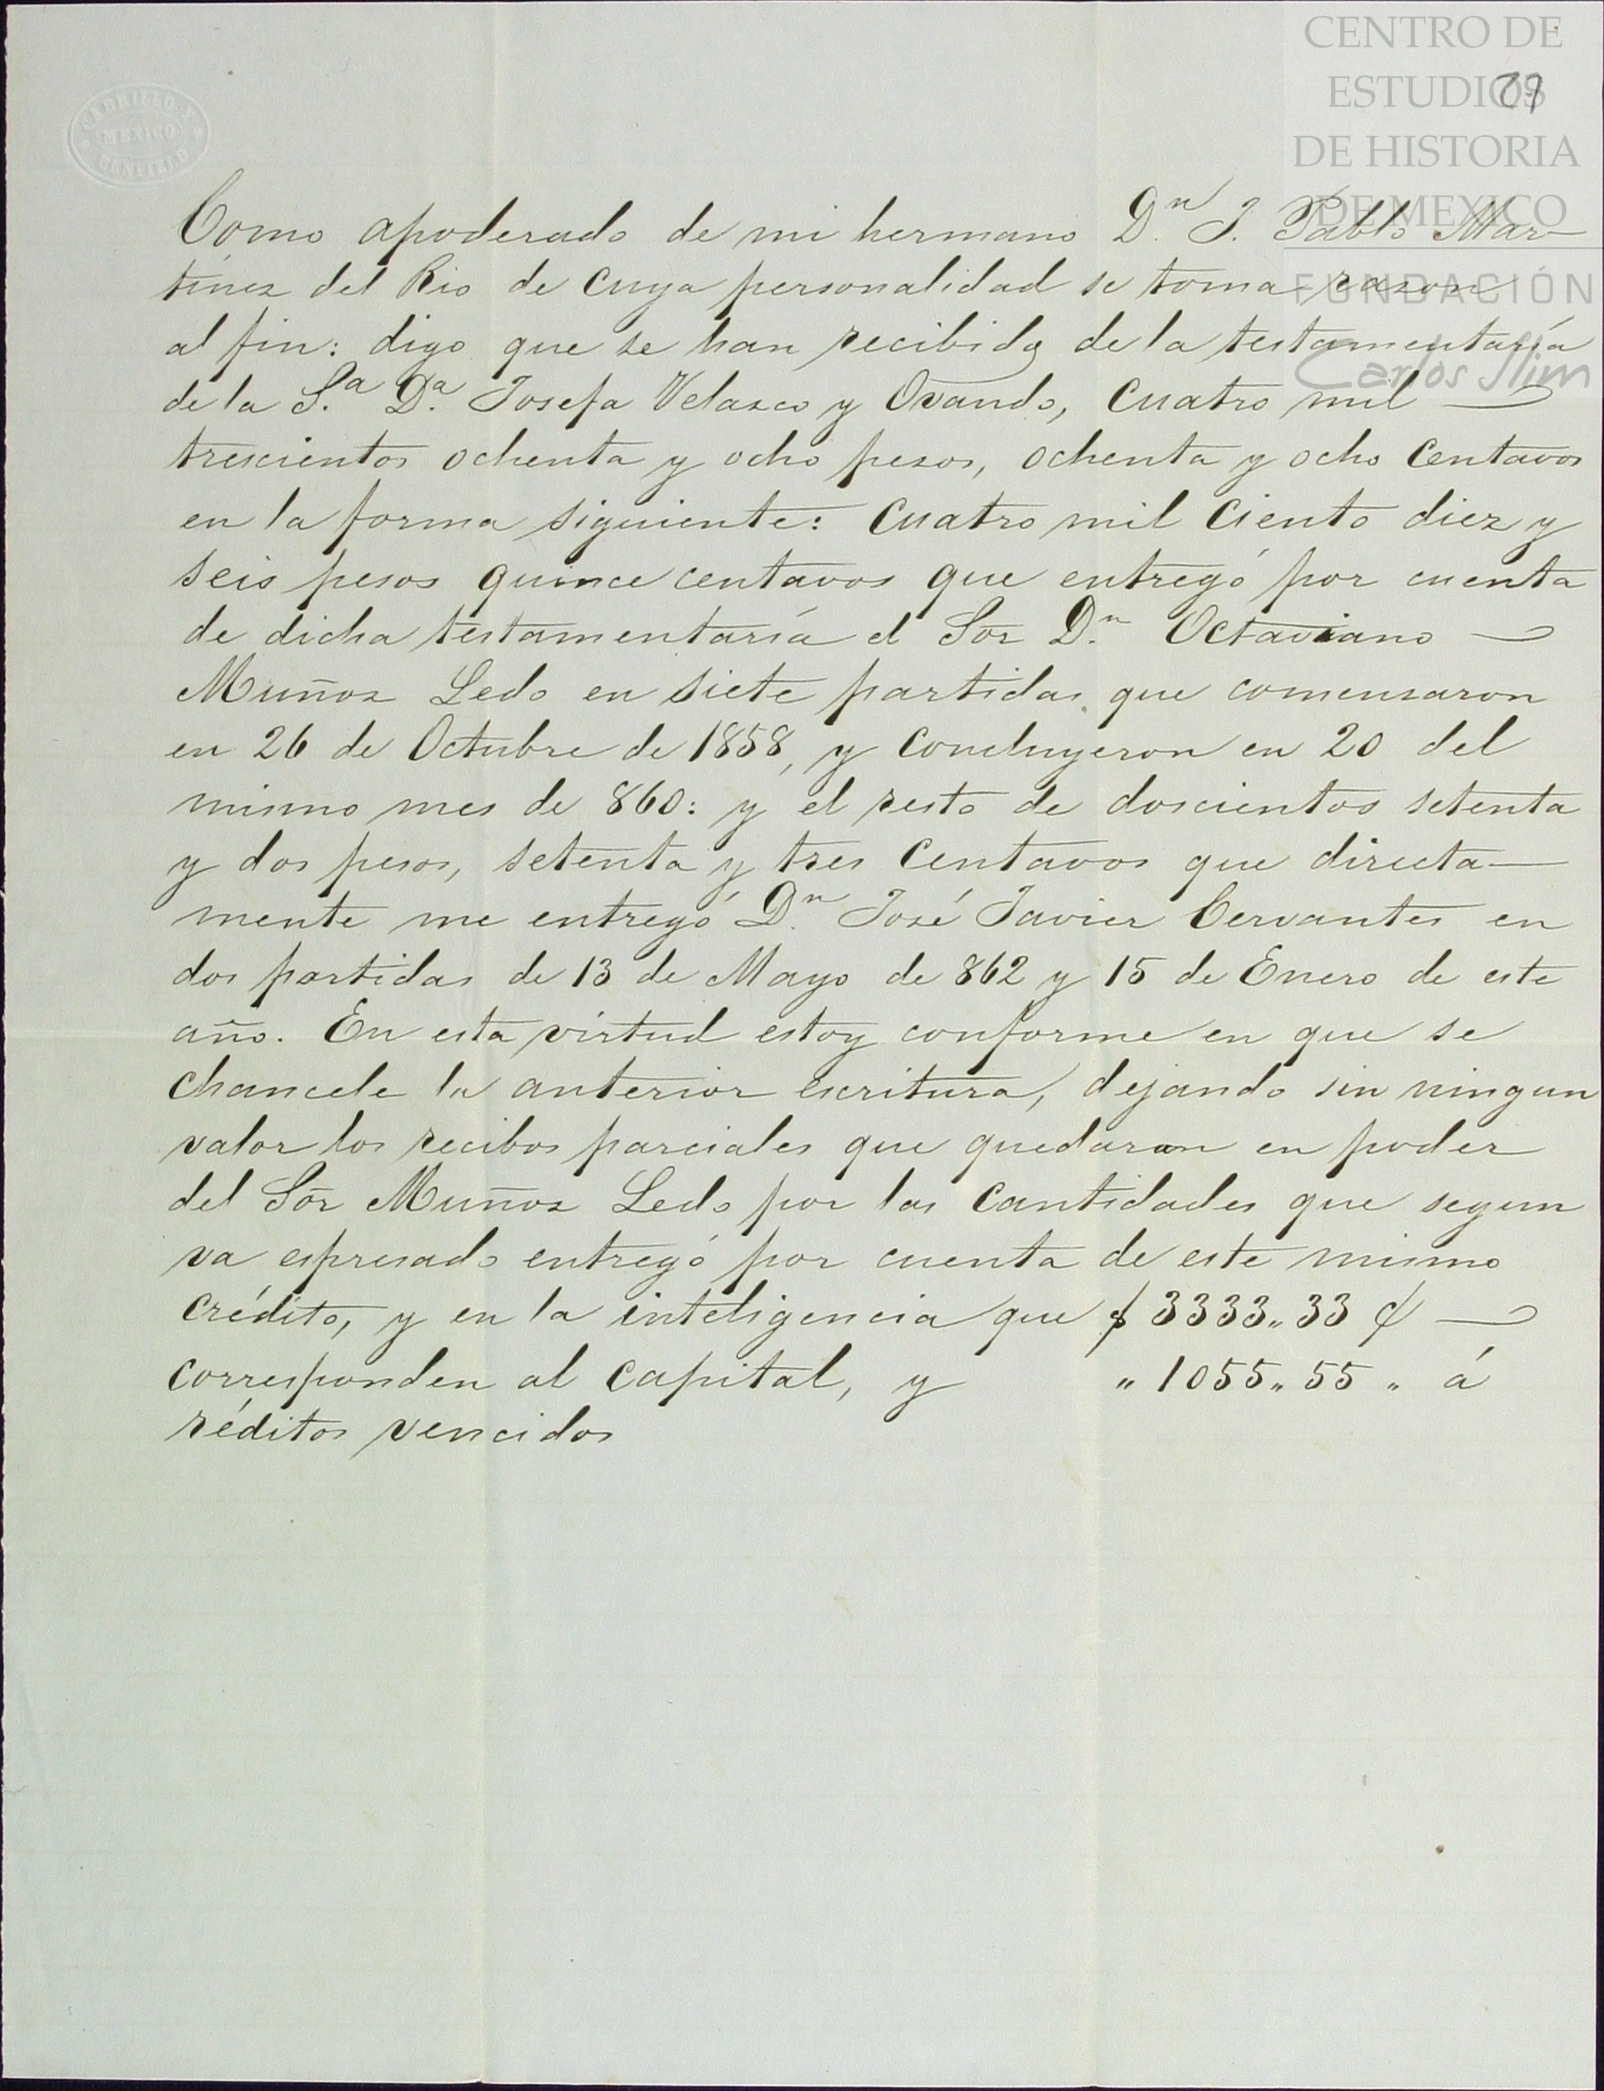 CENTRO DE
ESTUDIOS
DE HISTORIA
DE MEXICO
FUNDACIÓN
Carlos Slim
CARRILLO Y
MEXICO
Como apoderado de mi hermano Dn. J. Pablo Mar-
tinez del Rio de cuya personalidad se toma razon
al fin: digo que se han recibido de la testamentaría
de la S.a D.a Josefa Velasco y Ovando, cuatro mil
trescientos ochenta y ocho pesos, ochenta y ocho centavos
en la forma siguiente: cuatro mil ciento diez y
seis pesos quince centavos que entregó por cuenta
de dicha testamentaría el Sor D.n Octaviano
Muñoz Ledo en siete partidas que comensaron
en 26 de Octubre de 1858, y concluyeron en 20 del
mismo mes de 860: y el resto de doscientos setenta
y dos pesos, setenta y tres centavos que directa-
mente me entregó D.n José Javier Cervantes en
dos partidas de 13 de Mayo de 862 y 15 de Enero de este
año. En esta virtud estoy conforme en que se
chancele la anterior escritura, dejando sin ningun
valor los recibos parciales que quedaran en poder
del Sõr Muñoz Ledo por las cantidades que segun
va espresado entregó por cuenta de este mismo
crédito, y en la inteligencia que $ 3333,, 33 ¢
corresponden al capital, y ,, 1055,, 55 ,, á
réditos vencidos